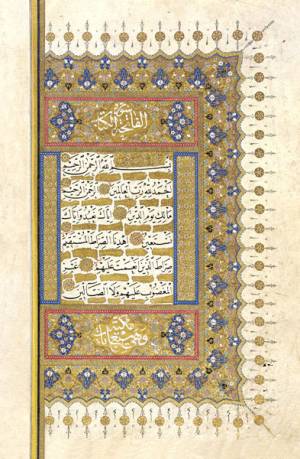 الفاتحة الكتاب
بِسْمِ اللّٰهِ الرَّحْمٰنِ الرَّحِيمِ
اَلْحَمْدُ لِلّٰهِ رَبِّ الْعَالَمِينَ الرَّحْمٰنِ الرَّحِيمِ
مَالِكِ يَوْمِ الدِّينِ اِيَّاكَ نَعْبُدُ وَاِيَّاكَ
نَسْتَعِينُ اِهْدِنَا الصِّرَاطَ الْمُسْتَقِيمَ
صِرَاطَ الَّذِينَ اَنْعَمْتَ عَلَيْهِمْ غَيْرِ
الْمَغْضُوبِ عَلَيْهِمْ وَلَا الضَّالِّينَ
مكية
وهي سبع آيات